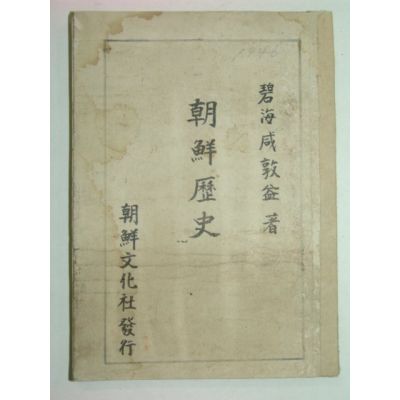 1946
碧海咸敦益著
朝鮮歷史
朝鮮文化社發行